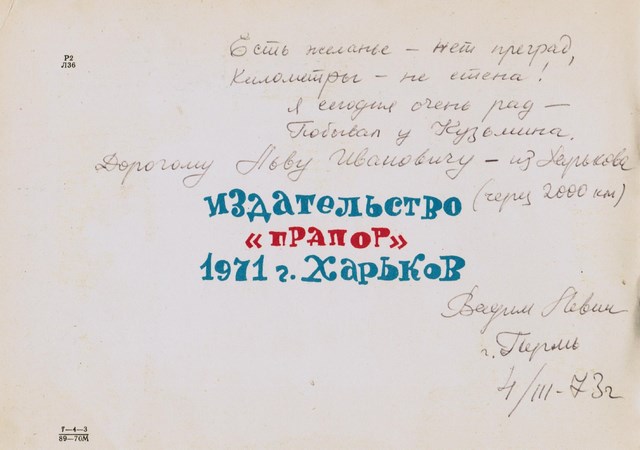 Р2
Л36
Есть желанье – нет преград,
Километры – не стена!
Я сегодня очень рад –
Побывал у Кузьмина.
Дорогому Льву Ивановичу – из Харькова
(через 2000 км)
издательство
«ПРАПОР»
1971 г. Харьков
Вадим Левин
г. Пермь
4/III-73г
7–4–3
89–70М